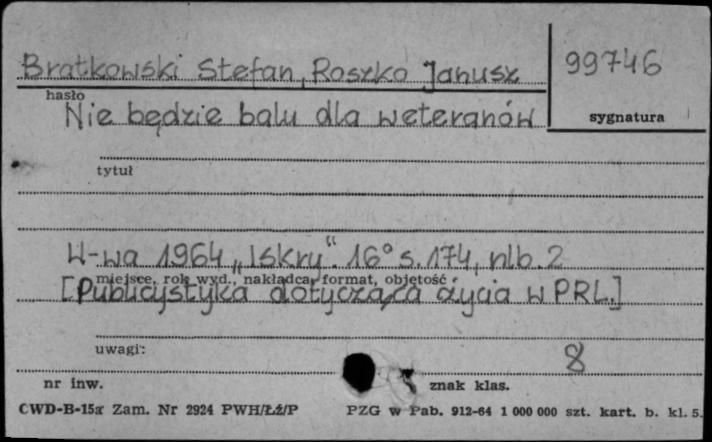 Bratkowski Stefan, Roszko Janusz
99746
hasło
Nie będzie balu dla weteranów
sygnatura
tytuł
W-wa 1964 „Iskry". 16° s. 174, nlb. 2
miejsce, rok wyd., nakładca, format, objętość
[Publicystyka dotycząca życia w PRL.]
uwagi:
8
nr inw.
znak klas.
CWD-B-15a Zam. Nr 2924 PWH/Łź/P
PZG w Pab. 912-64 1 000 000 szt. kart. b. kl. 5.